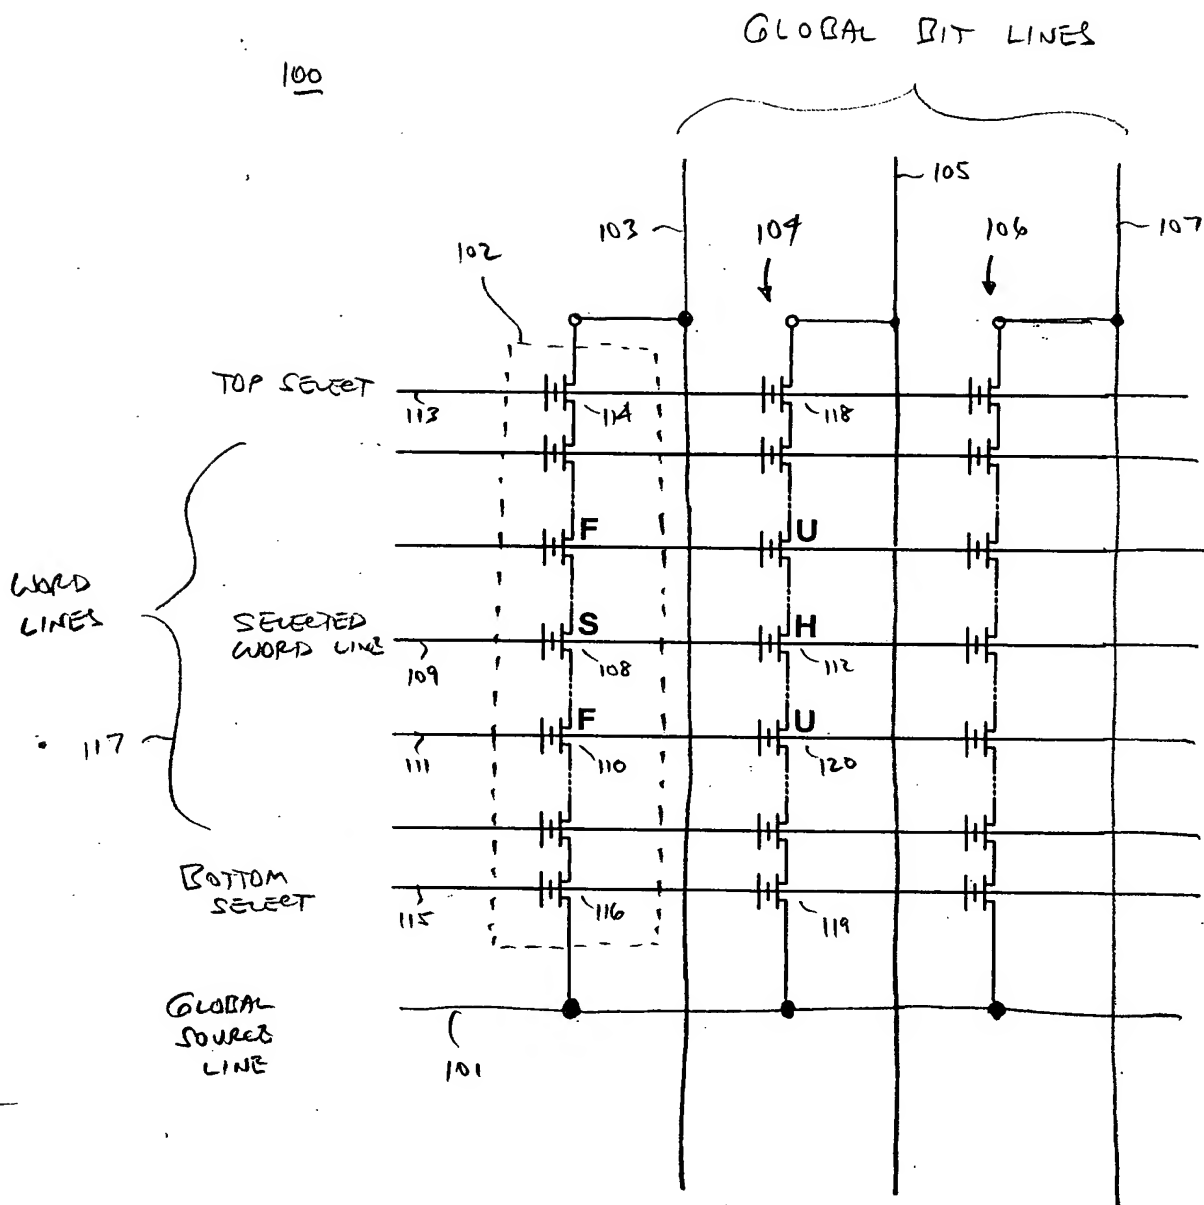 GLOBAL BIT LINES
100
105
103
104
106
107
102
TOP SELECT
113
114
118
F
U
WORD
LINES
SELECTED
WORD LINE
S
H
109
108
112
F
U
117
111
110
120
BOTTOM
SELECT
115
116
119
GLOBAL
SOURCE
LINE
101